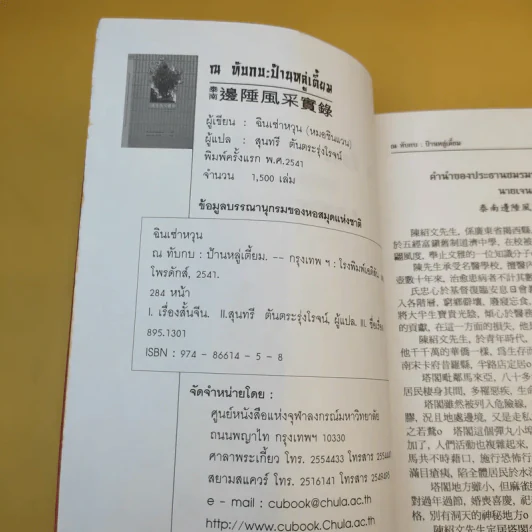 ณ ทับกบ:ป้านหลู่เตี้ยม
泰南 邊陲風采實錄
ผู้เขียน : ฉินเซ่าหวุน (หมอชินแวน)
ผู้แปล : สุนทรี ตันตระรุ่งโรจน์
พิมพ์ครั้งแรก พ.ศ.2541
จำนวน 1,500 เล่ม
ข้อมูลบรรณานุกรมของหอสมุดแห่งชาติ
ฉินเซ่าหวุน
ณ ทับกบ : ป้านหลู่เตี้ยม. -- กรุงเทพ ฯ : โรงพิมพ์
โพรดักส์, 2541.
284 หน้า
I. เรื่องสั้นจีน. II.สุนทรี ตันตระรุ่งโรจน์, ผู้แปล. III. ชื่อเรื่อง
895.1301
ISBN : 974 - 86614 - 5 - 8
จัดจำหน่ายโดย :
ศูนย์หนังสือแห่งจุฬาลงกรณ์มหาวิทยาลัย
ถนนพญาไท กรุงเทพฯ 10330
ศาลาพระเกี้ยว โทร. 2554433 โทรสาร
สยามสแควร์ โทร. 2516141 โทรสาร
e - mail : cubook@chula.ac.th
http://www.cubook.Chula.ac.th
ณ ทับกบ : ป้านหลู่เตี้ยม
คำนำของประธานชมรม
นายเจน
泰南邊陲風
陳紹文先生,係廣東省揭西縣
於五經富嚴朝道濟中學,在校被
麗風度,舉止文雅的一位知識分子
陳先生承受名醫學校,擅醫內
壺數十年來,治愈患病者不計其數
氏忠心於基督復臨安息日會
入各階層,窮鄉僻壤,廢寢忘食
將大半生寶貴光陰,傾心於醫務
的貢獻,在這一方面的損失,
陳紹文先生,於青年時代,
他千千萬的華僑一樣,為生存
南宋卡府昔羅縣,半路店定居o
塔閣毗鄰馬來亞,八十多
居民棲身其間,多罹惡疾,生命
塔閣雖然被列入危險線,
膠,況且地處邊境,又是走私
之若鶩o 塔閣這個彈丸小埠
加了,人們活動也複雜起來,
馬共不時藉口,施行恐怖行
滿目瘡痍,陷全體居民於水
塔閣地方雖小,但麻雀
對過年過節,婚喪喜慶,祀
格,別有洞天的神秘地方o
陳紹文先生定居塔閣